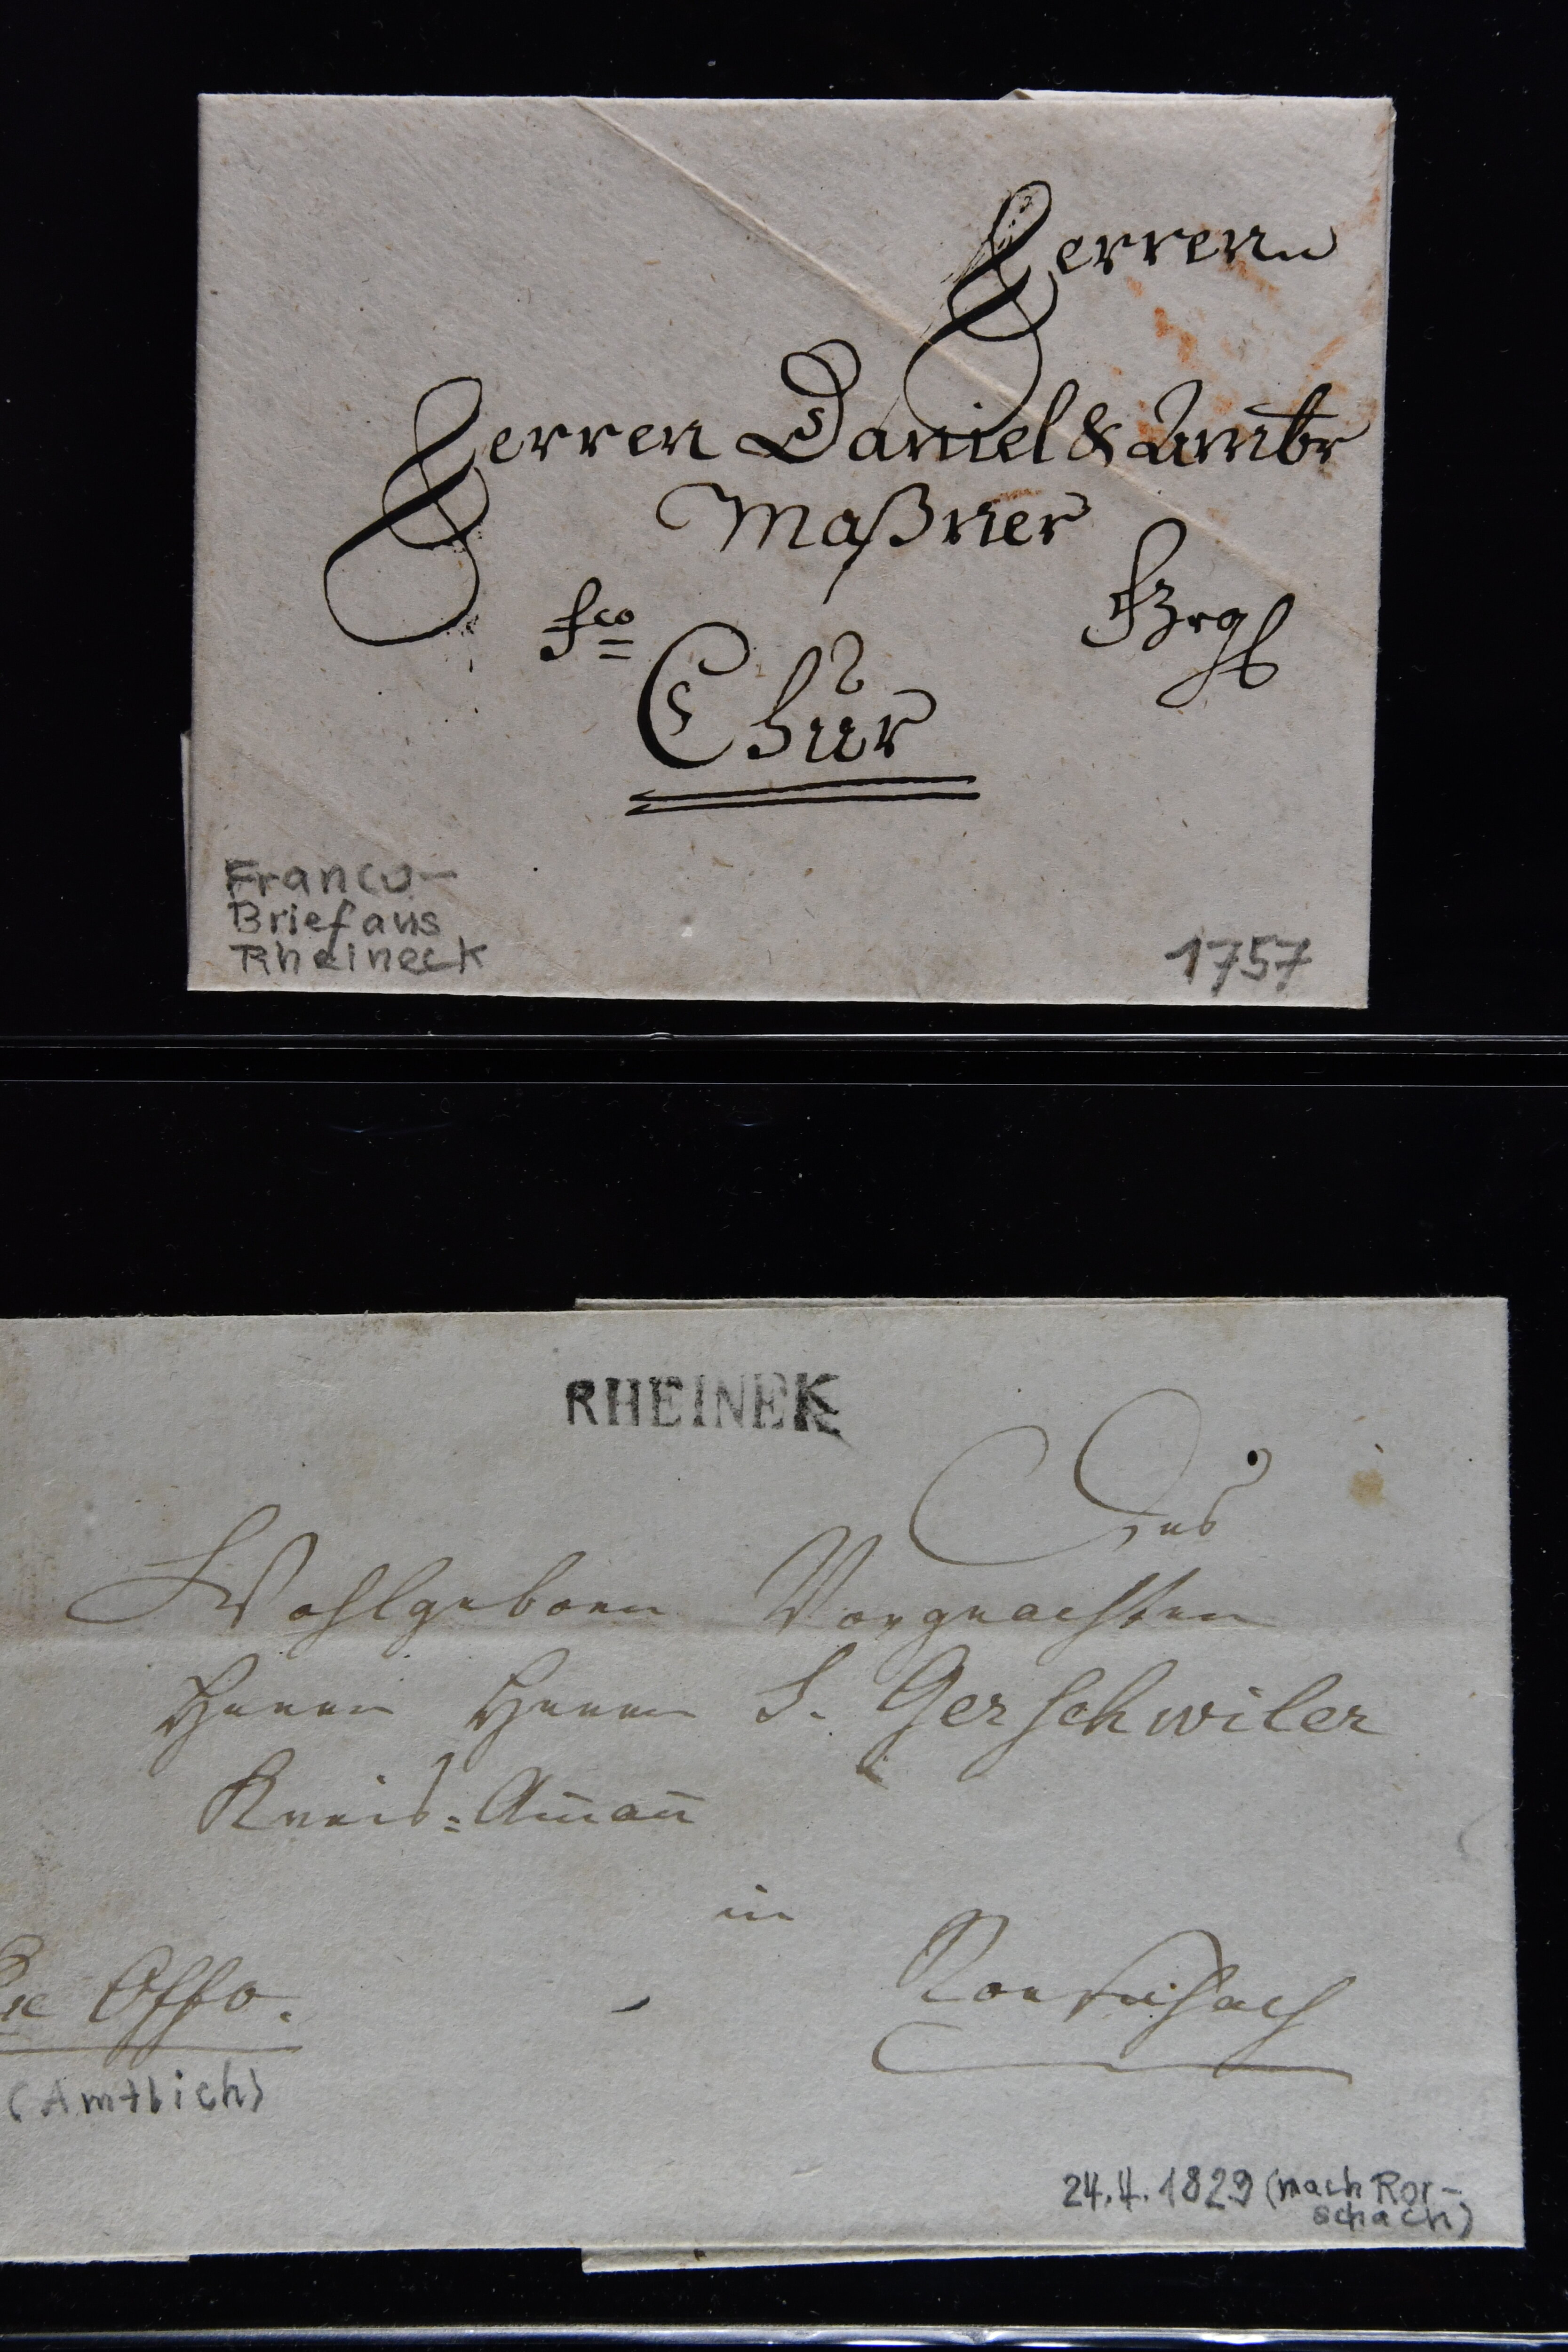 Herrenn
Herren Daniel & Ambr
Maßner
fco
Chùr
Franco-
Brief aus
Rheineck
1757
RHEINEK
Des
Wohlgeboren Vorgeachten
Herrn Herrn J. Gerschwiler
Kreis=Am̄an̄
in
Rorschach
Offo.
(Amtlich)
24.4.1829 (nach Ror-
schach)